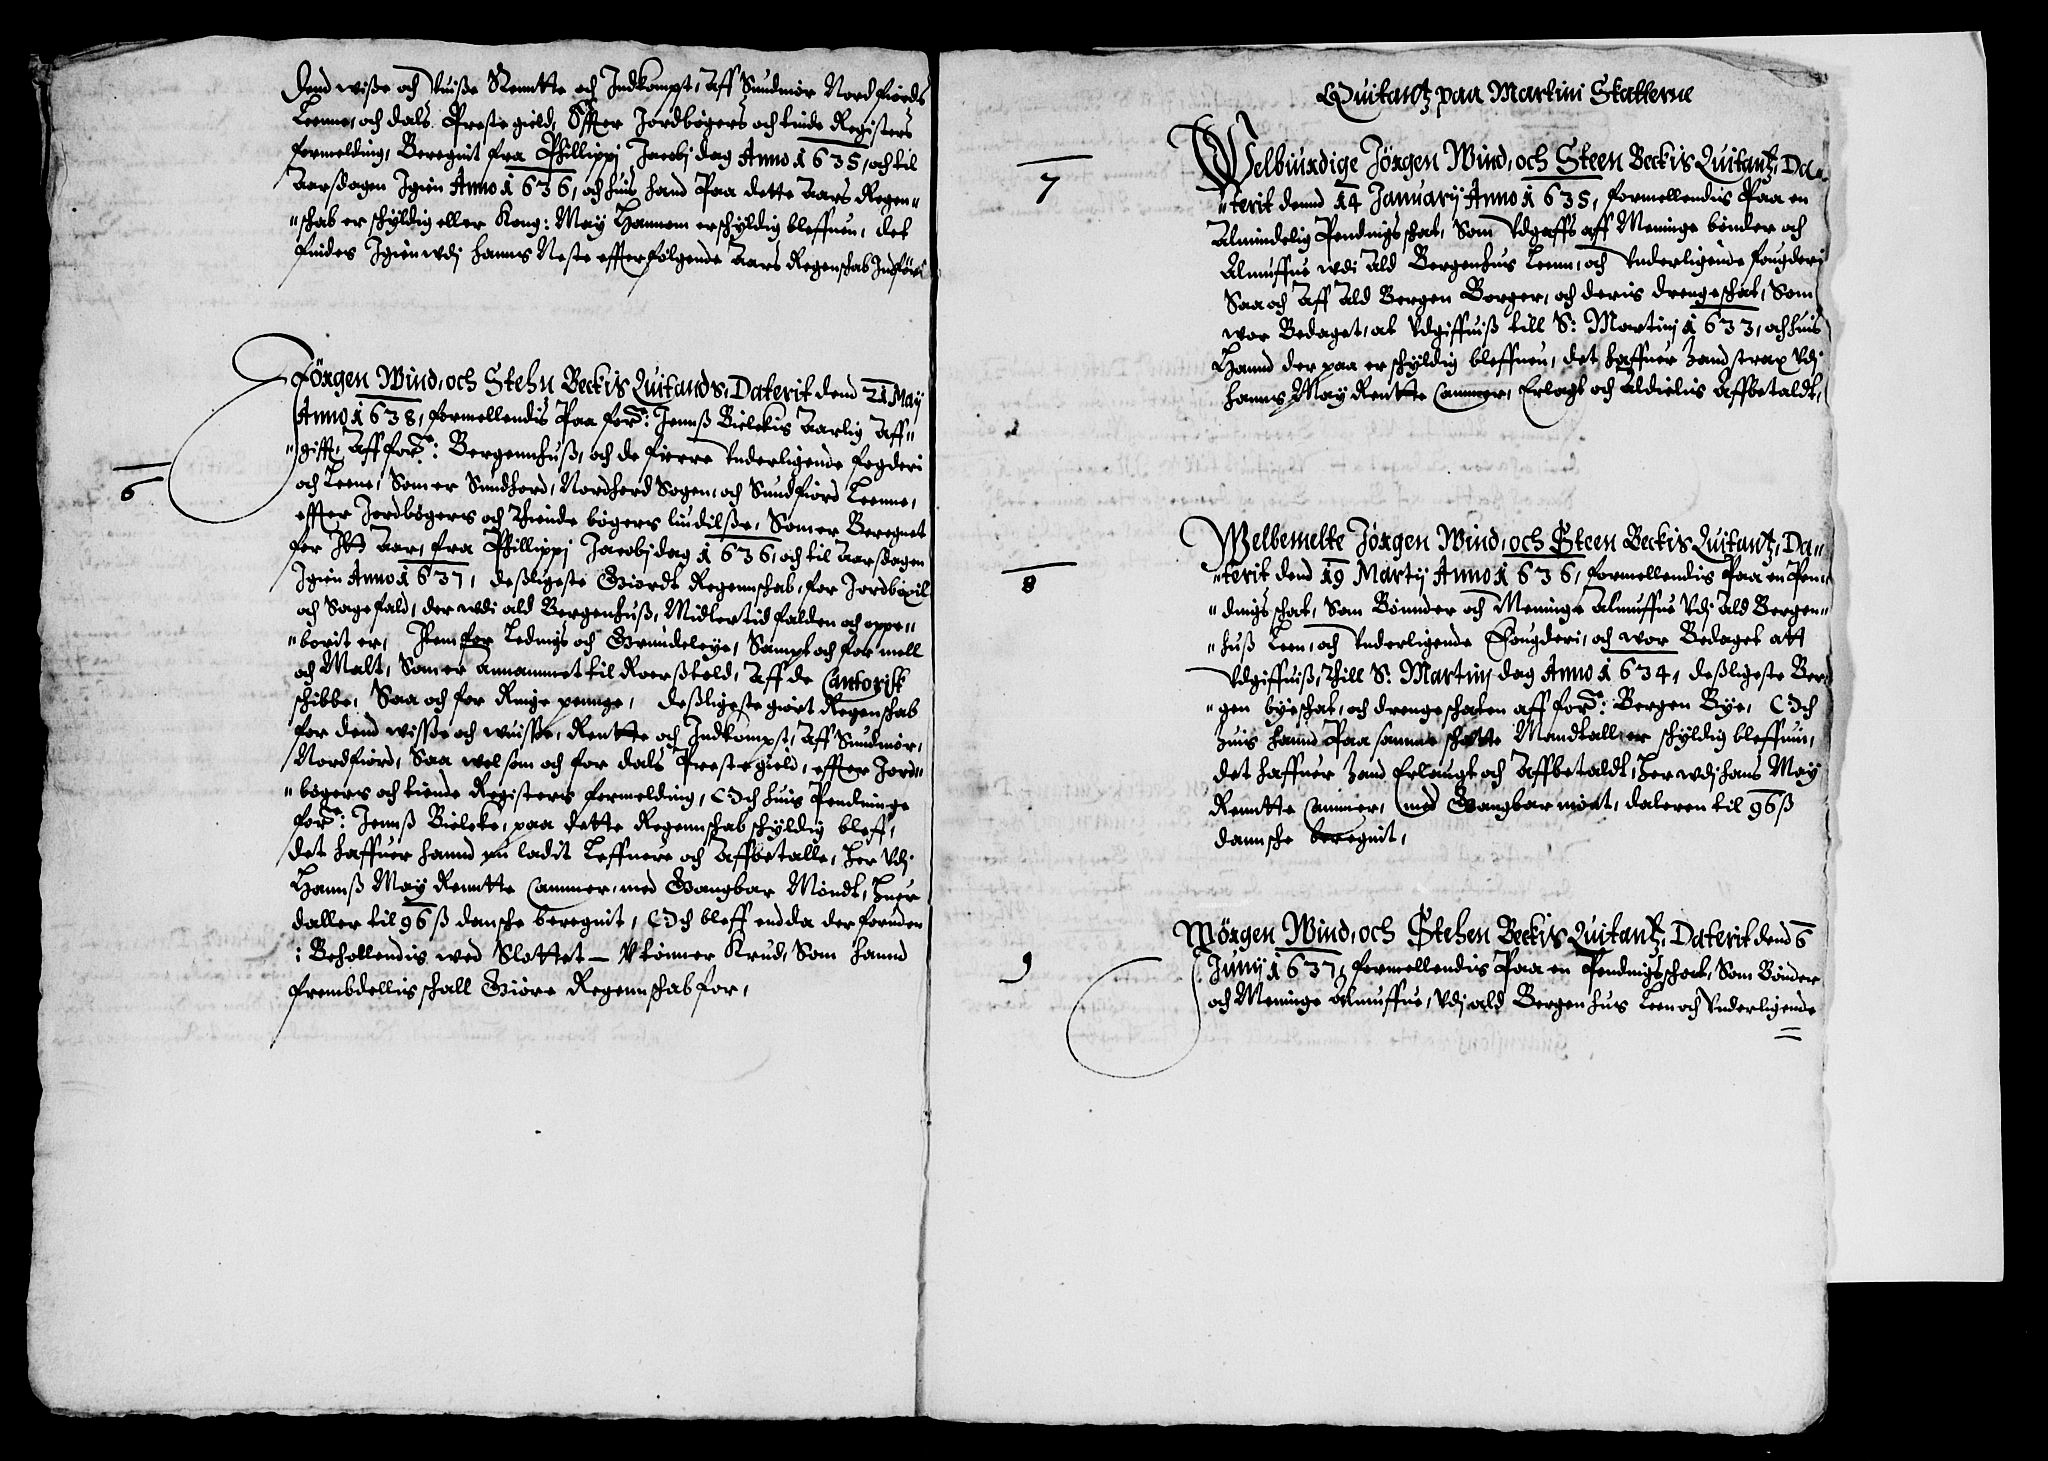 Dend wiße och Vuiße Rentte och Indkompst, Aff Sundmør Nordfiords
Leenne, och dals Preste gield, Effter Jordbøgers och tinde Registers
formelding, Beregnit fra Phillippj Jacobj dag Anno 1635, och til
Aarsdagen Igien Anno 1636, och huis hand Paa dette Aars Regen¬
¬schab er schyldig eller Kong: May Hannem erschyldig bleffuen, det
findes Igien wdj hanns Neste effterfølgende Aars Regenschab Indført
Jörgen Wind, och Stehn Beckis Quitands, Daterit dend 21 May
Anno 1638, formellendis Paa for: Jennß Bielckis Aarlig Aff¬
¬gifft, Aff for: Bergennhuß, och de fierre Underligende fogderi
6
och Leene, Som er Sundhord, Nordhord Sogen, och Sundfiord Leenne,
effter Jordbøgers och Thiende bøgers liudilße, Som er Beregnet
for Jtt Aar, fra Phillippj Jacobj dag 1636, och til Aarsdagen
Igien Anno 1637, deßligeste Giordt Regennschab, for Jordbøxil
och Sagefald, der wdi ald Bergenhuß, Midlertid falden och oppe¬
¬borit er, Item for Ledings och Grundeleye, Sampt och for mell
och Malt, Som er annammet til Roerßtold, Aff de Cantorisk
schibbe, Saa och for Ringe penninge, deßligeste giort Regenschab
for dend wisse och wuisse, Rentte och Indkompst, Aff Sundmør,
Nordfiord, Saa wel som och for dals Preste gield, effter Jord¬
¬bøgers och tiende Registers formelding, Och huis Pendninge
for: Jennß Bielcke, paa dette Regennschab schyldig bleff,
det haffuer hannd nu ladit Leffuere och Affbetalle, her Vdj
Hannß May Rentte Cammer, med Gangbar Möndt, huer
daller til 96 ß dansche beregnit, Och bleff endda der foruden
i Behollendis wed Slottet — V tönner Krud, Som hannd
frembdellis schall Giøre Regennschab for,
Quitantz paa Martini Skatterne
7
Welbiurdige Jörgen Wind, och Steen Beckis Quitantz, Da¬
¬terit dennd 14 Januarij Anno 1635, formellendis Paa en
Almindelig Pendings schat, Som Udgaffs aff Meninge bönder och
Almuffue wdi Ald Bergenhus Leenn, och Underligende fougderi
Saa och Aff Ald Bergen Borger, och deris drenge schat, Som
war Bedaget, at Udgiffuiß till S: Martinj 1633, och huis
Hannd der paa er schyldig bleffuen, det haffuer hand strax Vdj
hanns May Rentte Cammer, Erlagt och Aldielis Affbetaldt,
8
Welbemelte Jörgen Wind, och Steen Beckis Quitantz, Da¬
¬terit dend 19 Martij Anno 1636, formellendis Paa en Pen¬
¬dings schat, Som Bønder och Meninge Almuffue Vdj Ald Bergen¬
¬huß Leen, och Underligende Fougderi, och wor Bedaget att
Udgiffuiß, Thill S: Martinj dag Anno 1634, deßligeste Ber¬
¬gen byeschat, och drenge schaten aff for: Bergen Bye, Och
huis hannd Paa samme schatte Mandtall er schyldig bleffuen,
det haffuer hand Erlaugt och Affbetaldt, her wdj hans May
Renntte Cammer, med Gangbar mønt, daleren til 96 ß
dannsche beregnit,
9
Wörgen Wind, och Stehen Beckis Quitantz, Daterit dend 6
Junij 1637, formellendis Paa en Pendings schat, Som Bönder
och Meninge Almuffue, Vdj ald Bergenhus Leen och Underligende